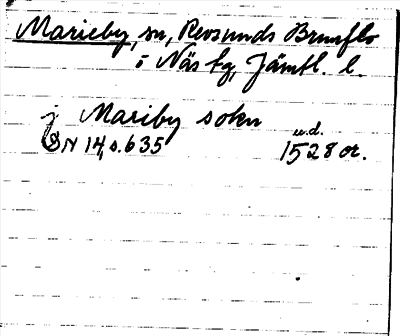 Marieby, sn, Revsunds Brunflo
i Näs tg, Jämtl. l.
j Mariby sokn
SN 14, s. 635
u.d.
1528 or.